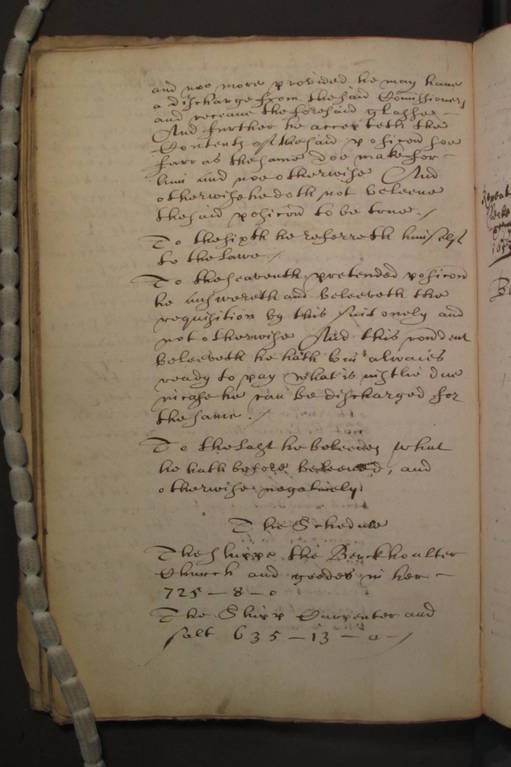 and noe more provided he may have
a discharge from the said Commissioners
and receave the foresaid glasses
And further he accepteth the
Contents of the said posicon soe
farr as the same doe make for
him and noe otherwise And
otherwise he doth not beleeve
the said posicon to be true ./
To the sixth he referreth himselfe
to the lawe
To the seaventh pretended posicon
he answereth and beleeveth the
requisition by this suit onely and
not otherwise And this rondent
beleeveth he hath bin alwaies
ready to pay what is justlie due
in case he can be discharged for
the same ./
To the last he beleeves what
he hath before beleeved, and
otherwise negatively
The Schedule
The shippe the Berckhoulter
Church and goodes in her
725 - 8 - 0
The Shipp Carpenter and
salt 635 - 13 - 0 - /